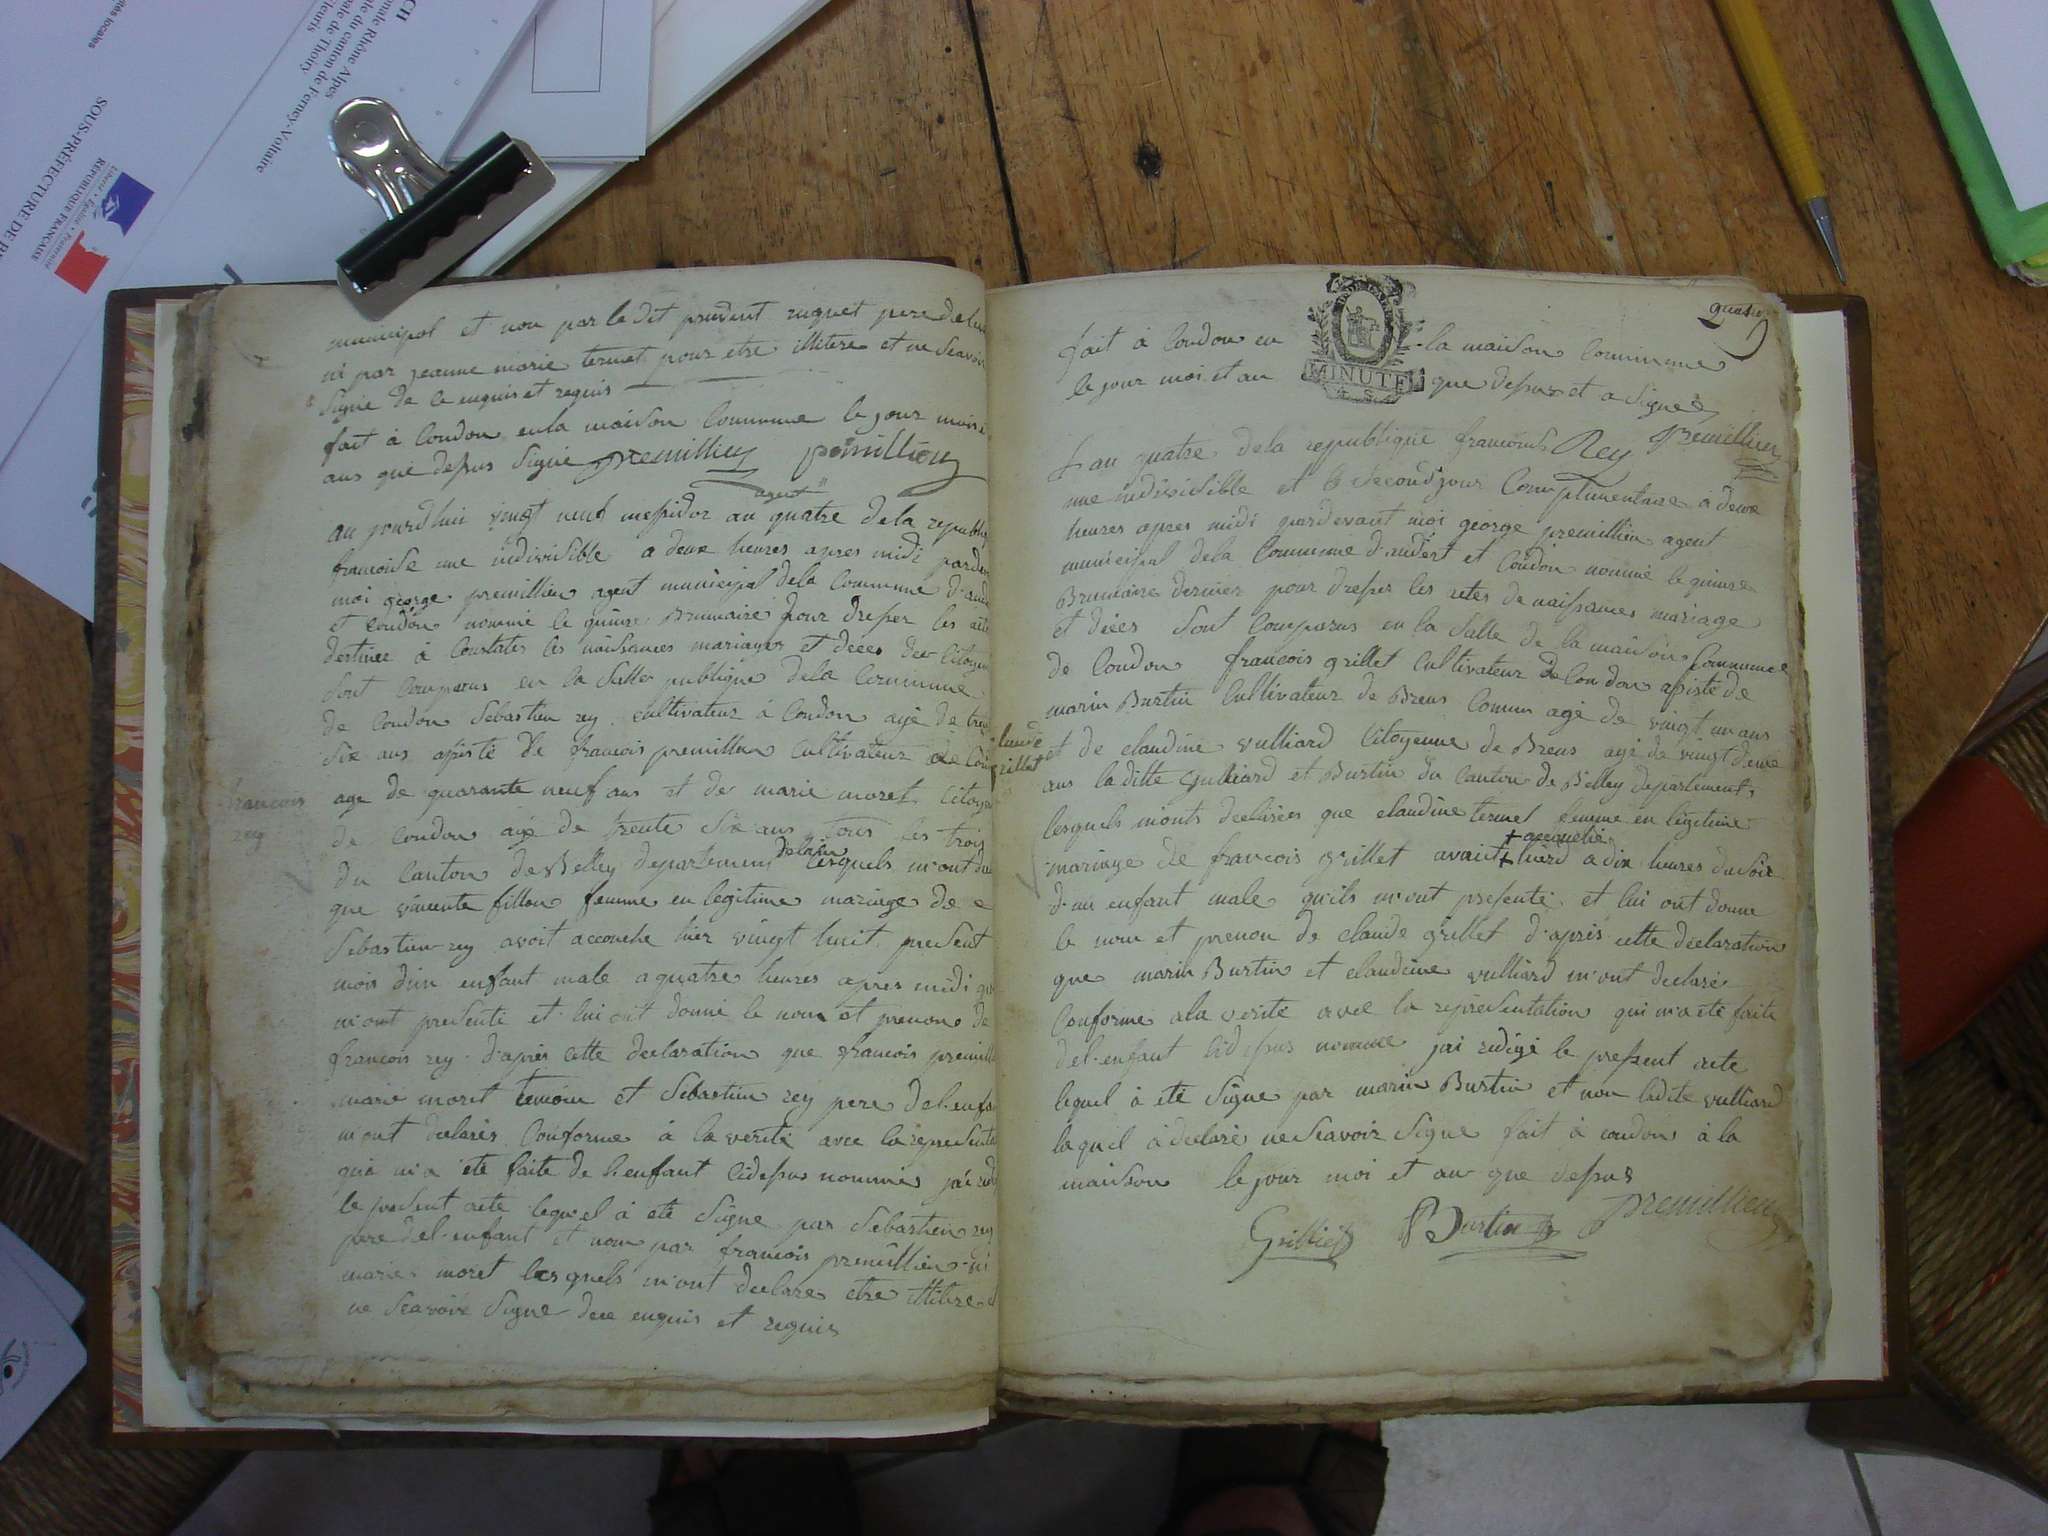 CH
nale Rhône Alpes
ale du canton de Ferney-Voltaire
ale de Thoiry
leuris
SOUS-PRÉFECTURE DE
Liberté • Égalité • Fraternité
RÉPUBLIQUE FRANÇAISE
municipal et non par le dit prudent ruguet pere de
ni par jeanne marie termet pour etre illitere et ne scavoir
signe de ce enquis et requis
fait à Condon en la maison Commune le jour mois
ans que depus Signe premillieu premillieu
agent
au jourdhui vingt neuf messidor an quatre de la republi
francoise une indivisible a deux heures apres midi parde
moi george premillieu agent municipal de la Commune d'ande
et Condon nommé le quinse Brumaire pour dresser les
destinee à Constater les naissances mariages et deces des Citoyen
sont Comparus en la Salle publique de la Commune
de Condon Sebastien rey cultivateur à Condon agé de trente
six ans assiste de francois premillieu Cultivateur de Con
age de quarante neuf ans et de marie moret Citoye
francois
rey
de Condon agé de trente six ans tous les trois
du Canton de Belley departement de lain lesquels m'ont
que vincente fillon femme en legitime mariage de
Sebastien rey avoit accouche hier vingt huit present
mois d'un enfant male a quatre heures apres midi
m'ont presenté et lui ont donné le nom et prenom de
francois rey d'apres cette declaration que francois premill
marie moret temoin et Sebastien rey pere de l'enfa
m'ont declarés Conforme à la verité avec la representa
qui m'a été faite de l'enfant cidepus nommés j'ai
le present acte lequel à eté Signe par Sebastien rey
pere de l'enfant et non par francois premillieu ni
marie moret lesquels m'ont declare etre illitere
ne scavoir signe dece enquis et requis
quatre
MINUTE
fait à Condon en la maison Commune
le jour moi et an que depus et a Signé
Rey premillieu
L'an quatre de la republique francoise
une indivisible et le second jour Complimentaire à deux
heures apres midi pardevant moi george premillieu agent
municipal de la Commune d'andert et Condon nommé le quinse
Brumaire dernier pour dresser les actes de naissances mariage
et deces sont Comparus en la Salle de la maison Commune
de Condon francois grillet Cultivateur de Condon assisté de
marin Burtin Cultivateur de Brens Comun agé de vingt un ans
claude
grillet
et de claudine vulliard Citoyenne de Brens agé de vingt deux
ans la ditte vulliard et Burtin du Canton de Belley departement
lesquels m'onts declarées que claudine termet femme en legitime
+ accouché
mariage de francois grillet avait + hierd a dix heures du soir
d'un enfant male qu'ils m'ont presenté et lui ont donne
le nom et prenon de claude grillet d'aprés cette declaration
que marin Burtin et claudine vulliard m'ont declaré
Conforme a la verite avec la representation qui m'a eté faite
de l'enfant cidepus nommee jai redigé le present acte
lequel à eté Signe par marin Burtin et non ladite vulliard
laquel à declaré ne scavoir signe fait à condon à la
maison le jour moi et an que depus
Grilliet Burtin premillieu